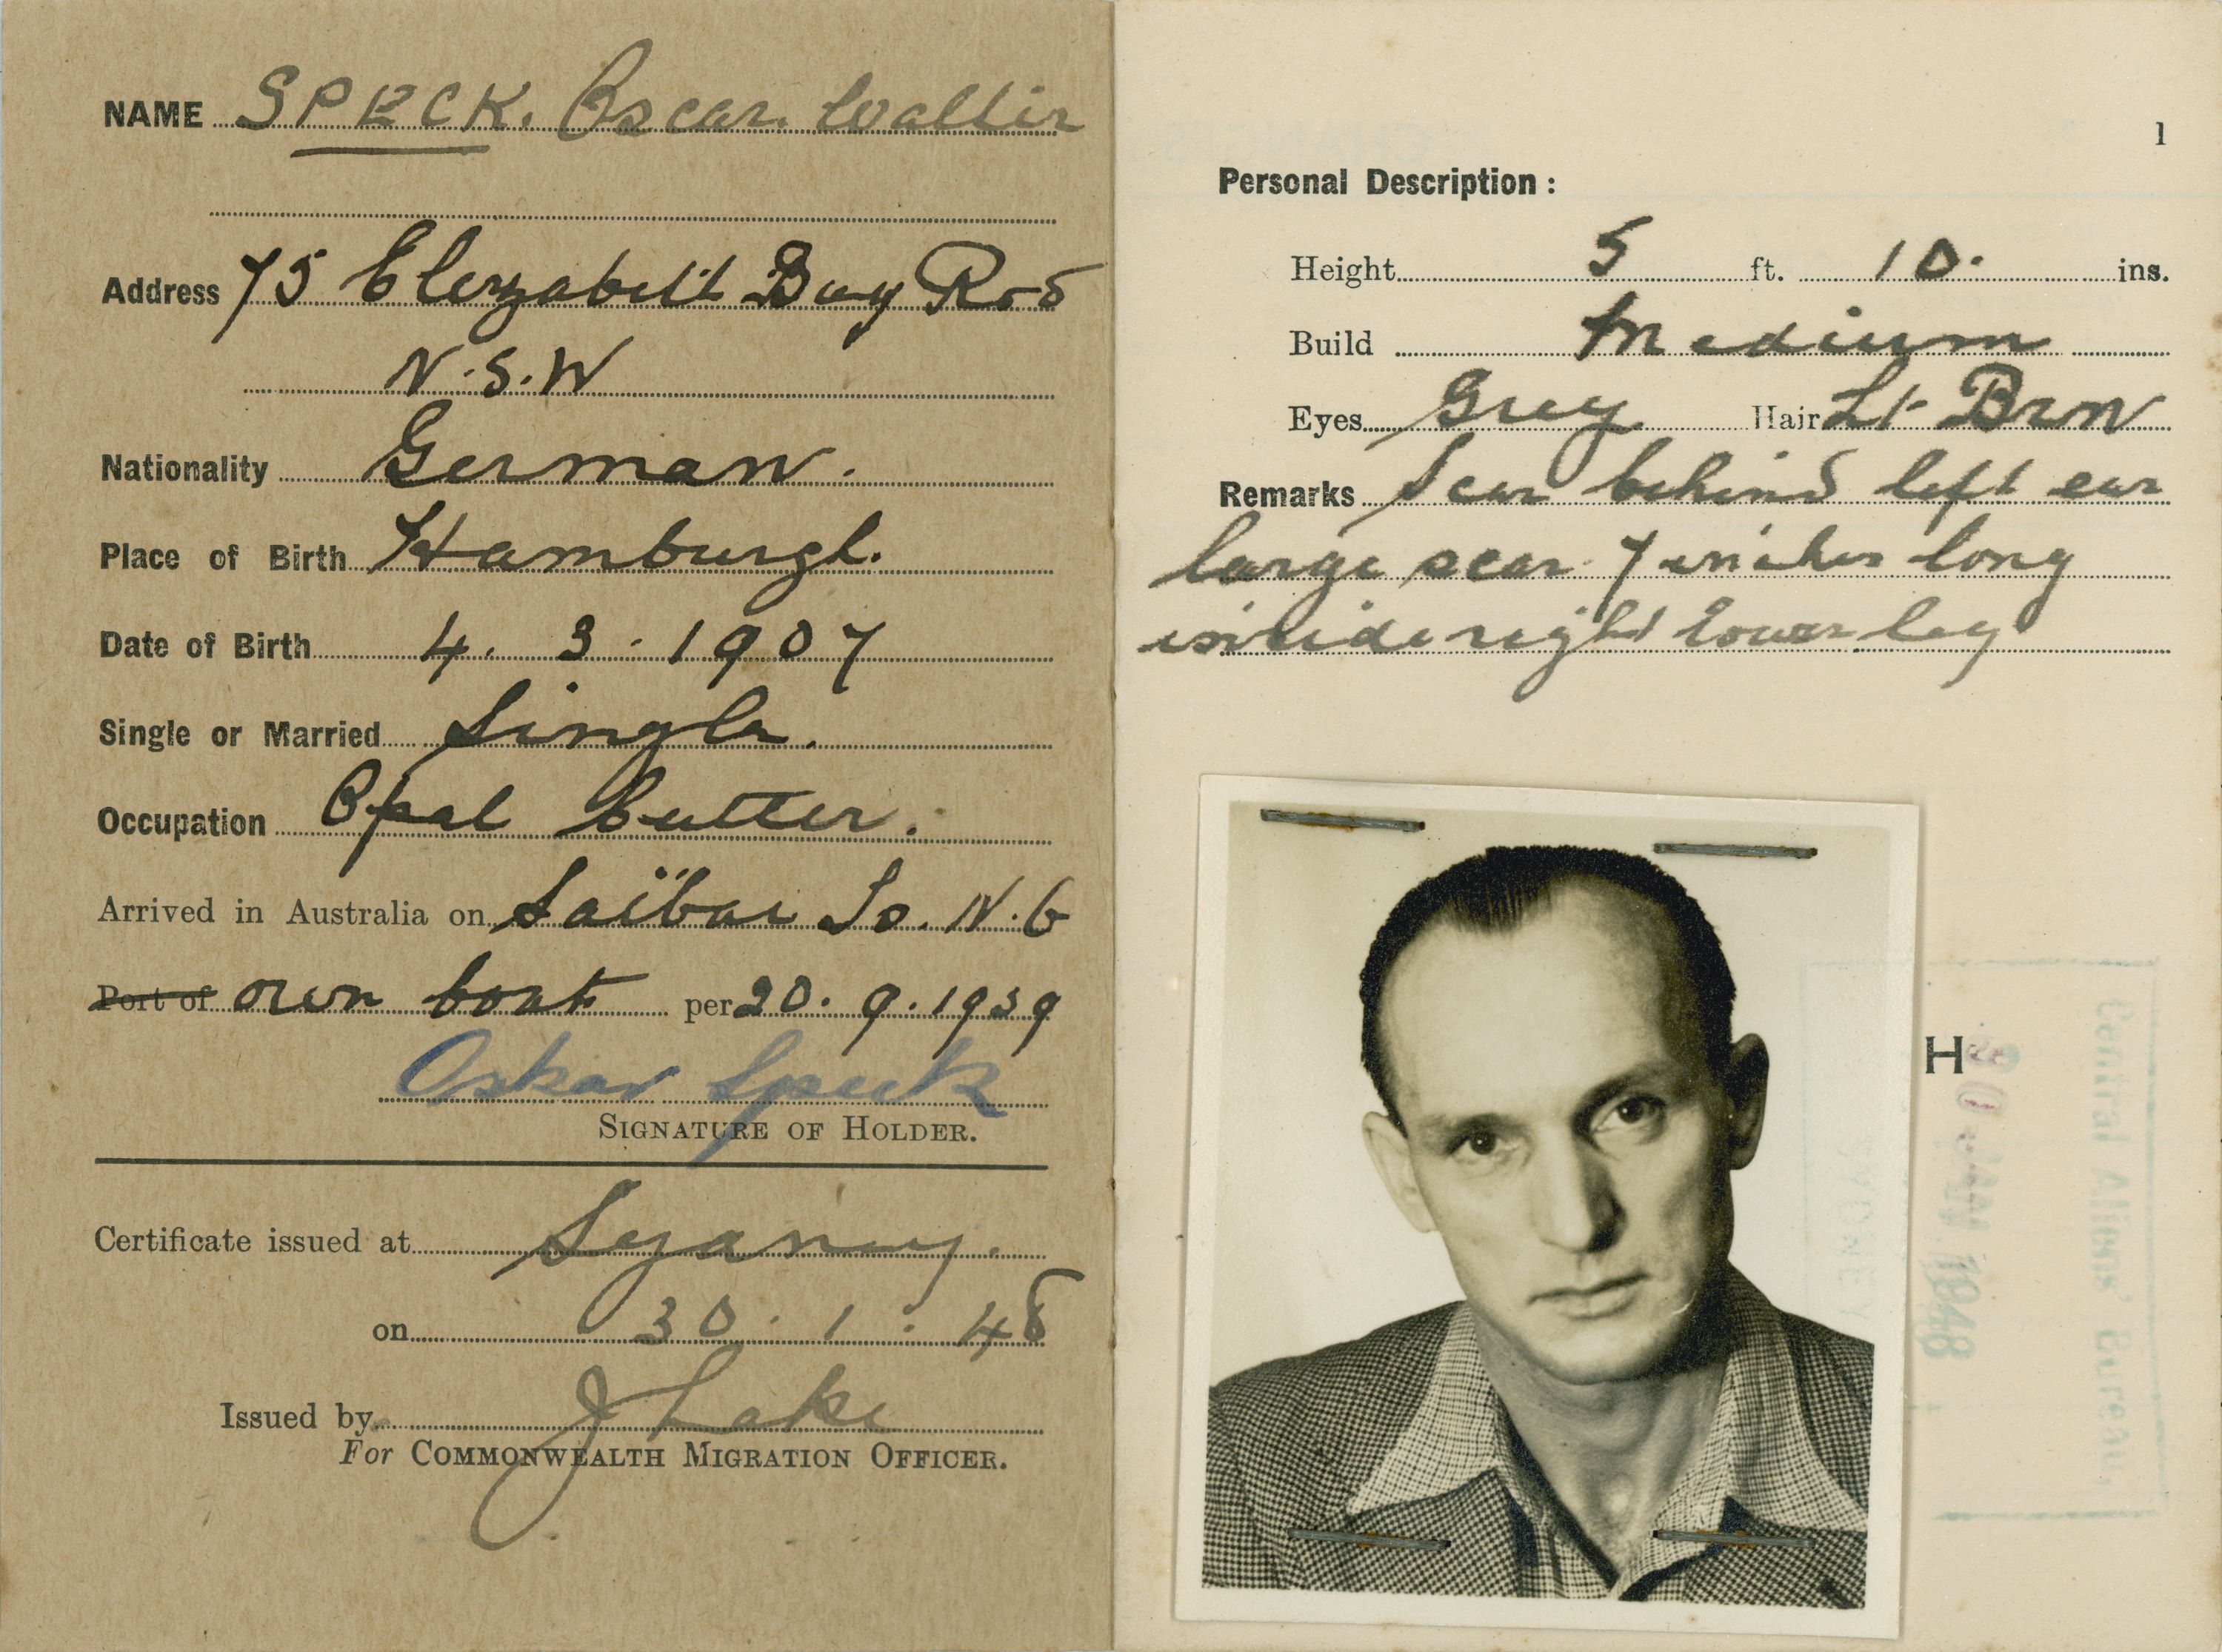 NAME SPECK. Oscar. Walter
Address 75 Elezabeth Bay Rod
N.S.W
Nationality German.
Place of Birth Hamburgh.
Date of Birth 4. 3. 1907
Single or Married Single.
Occupation Opal Cutter.
Arrived in Australia on Saibai Is. N.G
Port of own boat per 20. 9. 1939
Oskar Speck
SIGNATURE OF HOLDER.
Certificate issued at Sydney.
on 30. 1. 48
Issued by J Lake
For COMMONWEALTH MIGRATION OFFICER.
1
Personal Description :
Height 5 ft. 10. ins.
Build Medium
Eyes Grey Hair Lt Brn
Remarks Scar behind left ear
large scar 7 inches long
inside right lower leg
H
Central Aliens' Bureau,
30 JAN 1948
SYDNEY